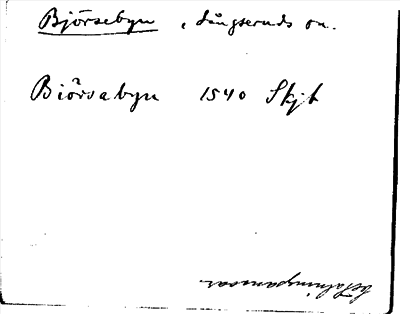 Björsebyn, Långseruds sn.
Biörsabyn 1540 Skjb